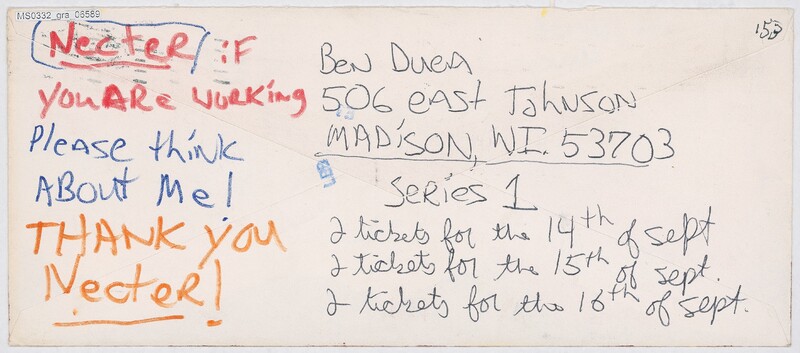 MS0332_gra_06589
153
Necter if
you are working
Please think
About Me!
THANK YOU
Necter!
Ben Duea
506 east Johnson
MADISON, WI. 53703
Series 1
2 tickets for the 14th of sept
2 tickets for the 15th of sept.
2 tickets for the 16th of sept.